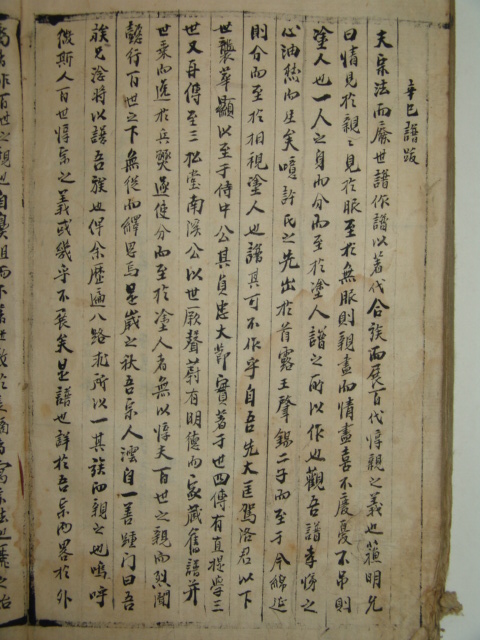 辛巳譜跋
夫宗法而廢世譜作譜以著代合族而展百代惇親之義也蘓明允
曰情見於親〻見於服至於無服則親盡而情盡喜不慶憂不吊則
塗人也一人之身而分而至於塗人譜之所以作也觀吾譜孝悌之
心油然而生矣噫許氏之先出於首露王肇錫二子而至于今綿延
則分而至於相視塗人也譜其可不作乎自吾先大匡駕洛君以下
世襲華顯以至于侍中公其貞忠大節實著于世四傳有直提學三
世又再傳至三松堂南溪公以世厥聲蔚有明德而家藏舊譜并
世乘而逸於兵燹過使分而至於塗人者無以惇夫百世之親而烈聞
懿行百世之下無從而繹思焉是歲之秋吾宗人澐自一善踵門曰吾
族兄淦將以譜吾族也俾余歷遍八路求所以一其族而親之也嗚呼
微斯人百世惇宗之義或幾乎不義矣是譜也詳於吾宗而畧於外